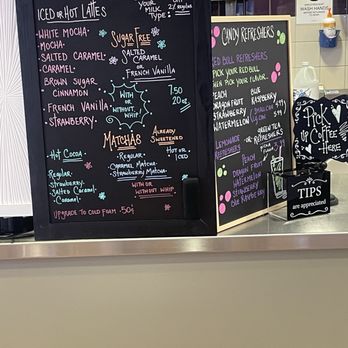 ICED OR HOT LATTES
WHITE MOCHA·
MOCHA·
SALTED CARAMEL·
CARAMEL·
BROWN SUGAR
CINNAMON
FRENCH VANILLA·
STRAWBERRY·
HOT COCOA·
REGULAR·
STRAWBERRY·
SALTED CARAMEL·
CARAMEL·
UPGRADE TO COLD FOAM · 50¢
MILK TYPE:
SUGAR FREE
SALTED
CARAMEL
OR
FRENCH VANILLA
WITH
OR
WITHOUT
WHIP
7.50
20 oz
MATCHAS
ALREADY
SWEETENED
·REGULAR·
CARAMEL MATCHA·
STRAWBERRY MATCHA·
HOT OR
ICED
WITH OR WITHOUT WHIP
CANDY REFRESHERS
RED BULL REFRESHERS
PICK YOUR RED BULL
THEN PICK YOUR FLAVOR:
DRAGON FRUIT
STRAWBERRY
WATERMELON
BLUE
RASPBERRY
LEMONADE
REFRESHERS
OR
GREEN TEA
REFRESHERS
PEACH
DRAGON
FRUIT
WATERMELON
STRAWBERRY
BLUE RASPBERRY
WASH HANDS
Pick
Up
Coffee
HERE
TIPS
are appreciated